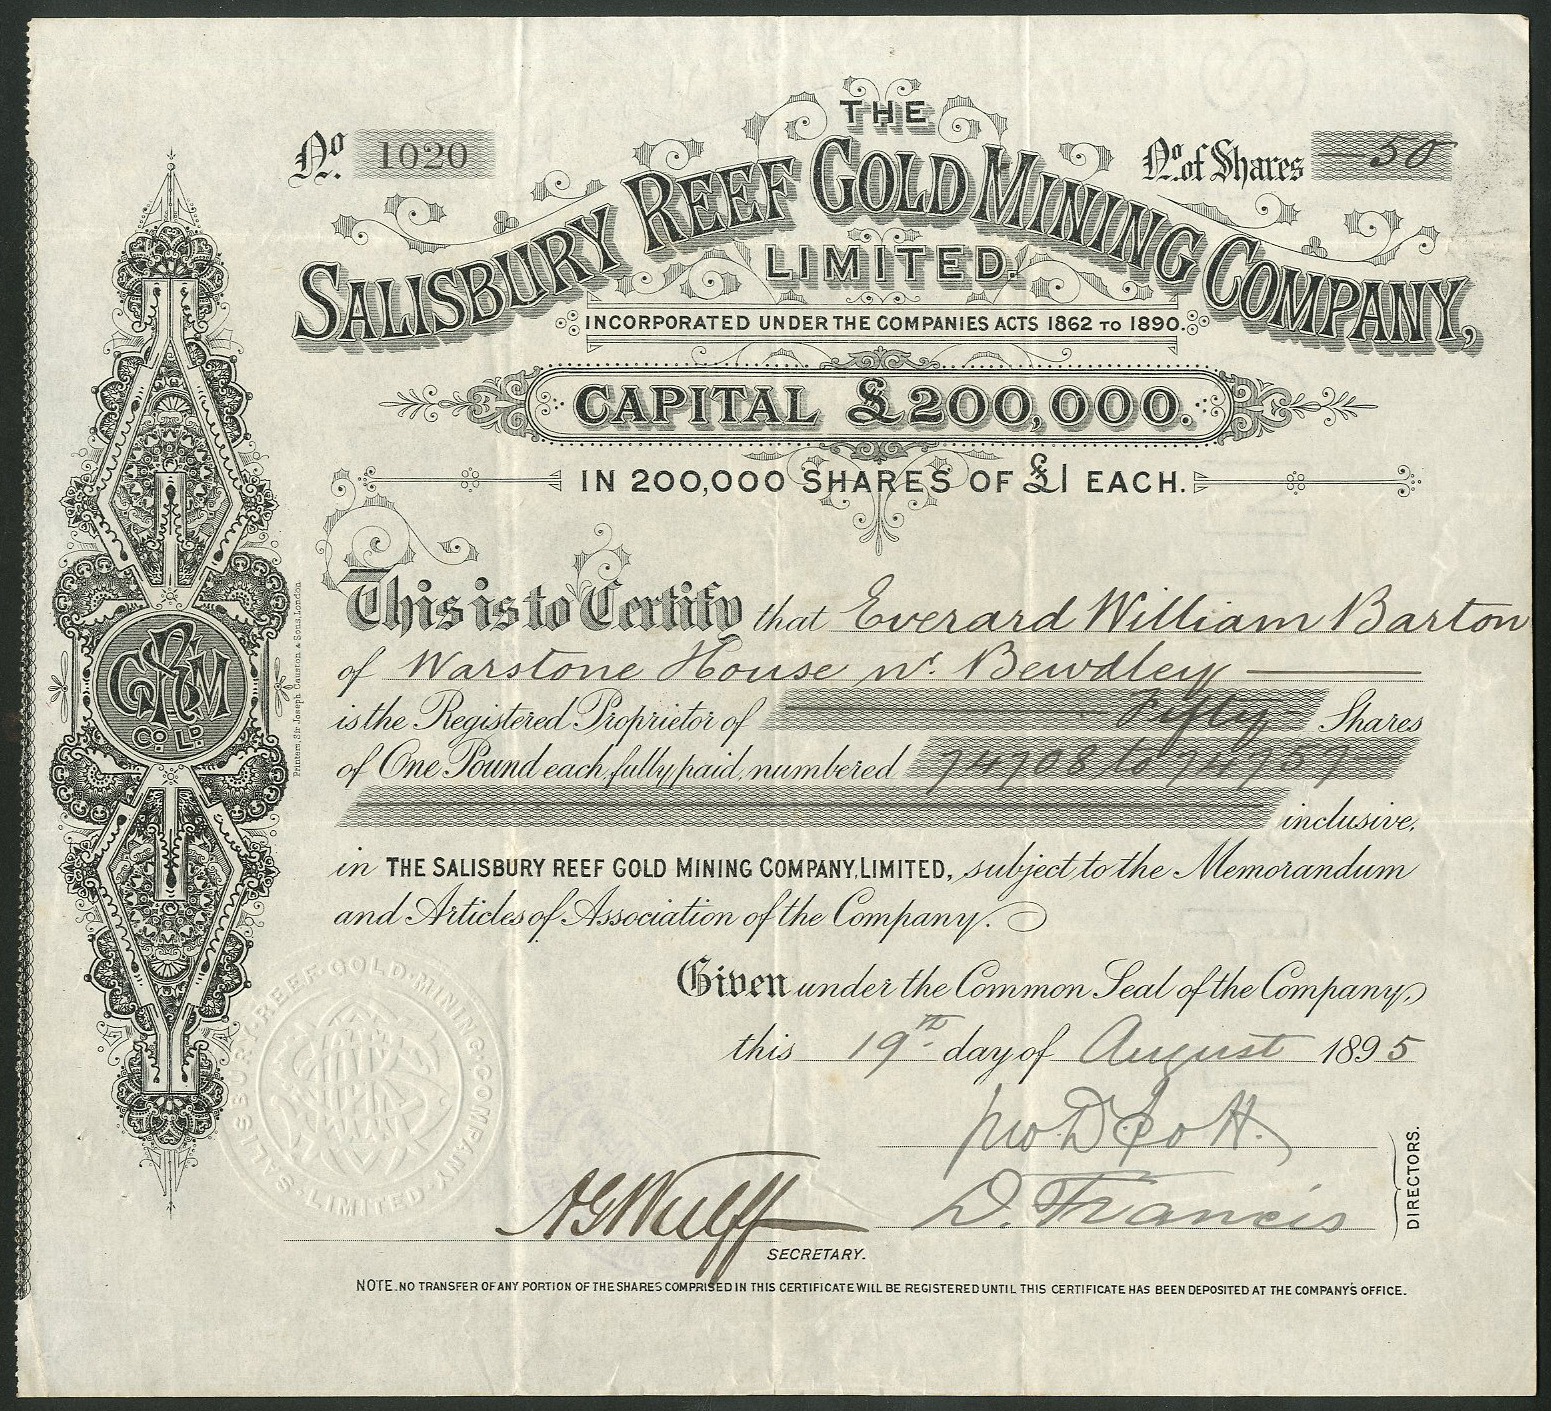 No. 1020
No. of Shares 50
THE
SALISBURY REEF GOLD MINING COMPANY,
LIMITED.
INCORPORATED UNDER THE COMPANIES ACTS 1862 TO 1890.
CAPITAL £200,000.
IN 200,000 SHARES OF £1 EACH.
This is to Certify that Everard William Barton
of Warstone House nr. Bewdley
is the Registered Proprietor of Fifty Shares
of One Pound each, fully paid, numbered 74708 to 74757
inclusive,
in THE SALISBURY REEF GOLD MINING COMPANY, LIMITED, subject to the Memorandum
and Articles of Association of the Company.
Given under the Common Seal of the Company,
this 19th day of August 1895
D. Francis
DIRECTORS.
A G Wulff
SECRETARY.
NOTE. NO TRANSFER OF ANY PORTION OF THE SHARES COMPRISED IN THIS CERTIFICATE WILL BE REGISTERED UNTIL THIS CERTIFICATE HAS BEEN DEPOSITED AT THE COMPANY'S OFFICE.
CO. LD.
Printers, Sir Joseph Causton & Sons, London.
SALISBURY·REEF·GOLD·MINING·COMPANY·LIMITED·